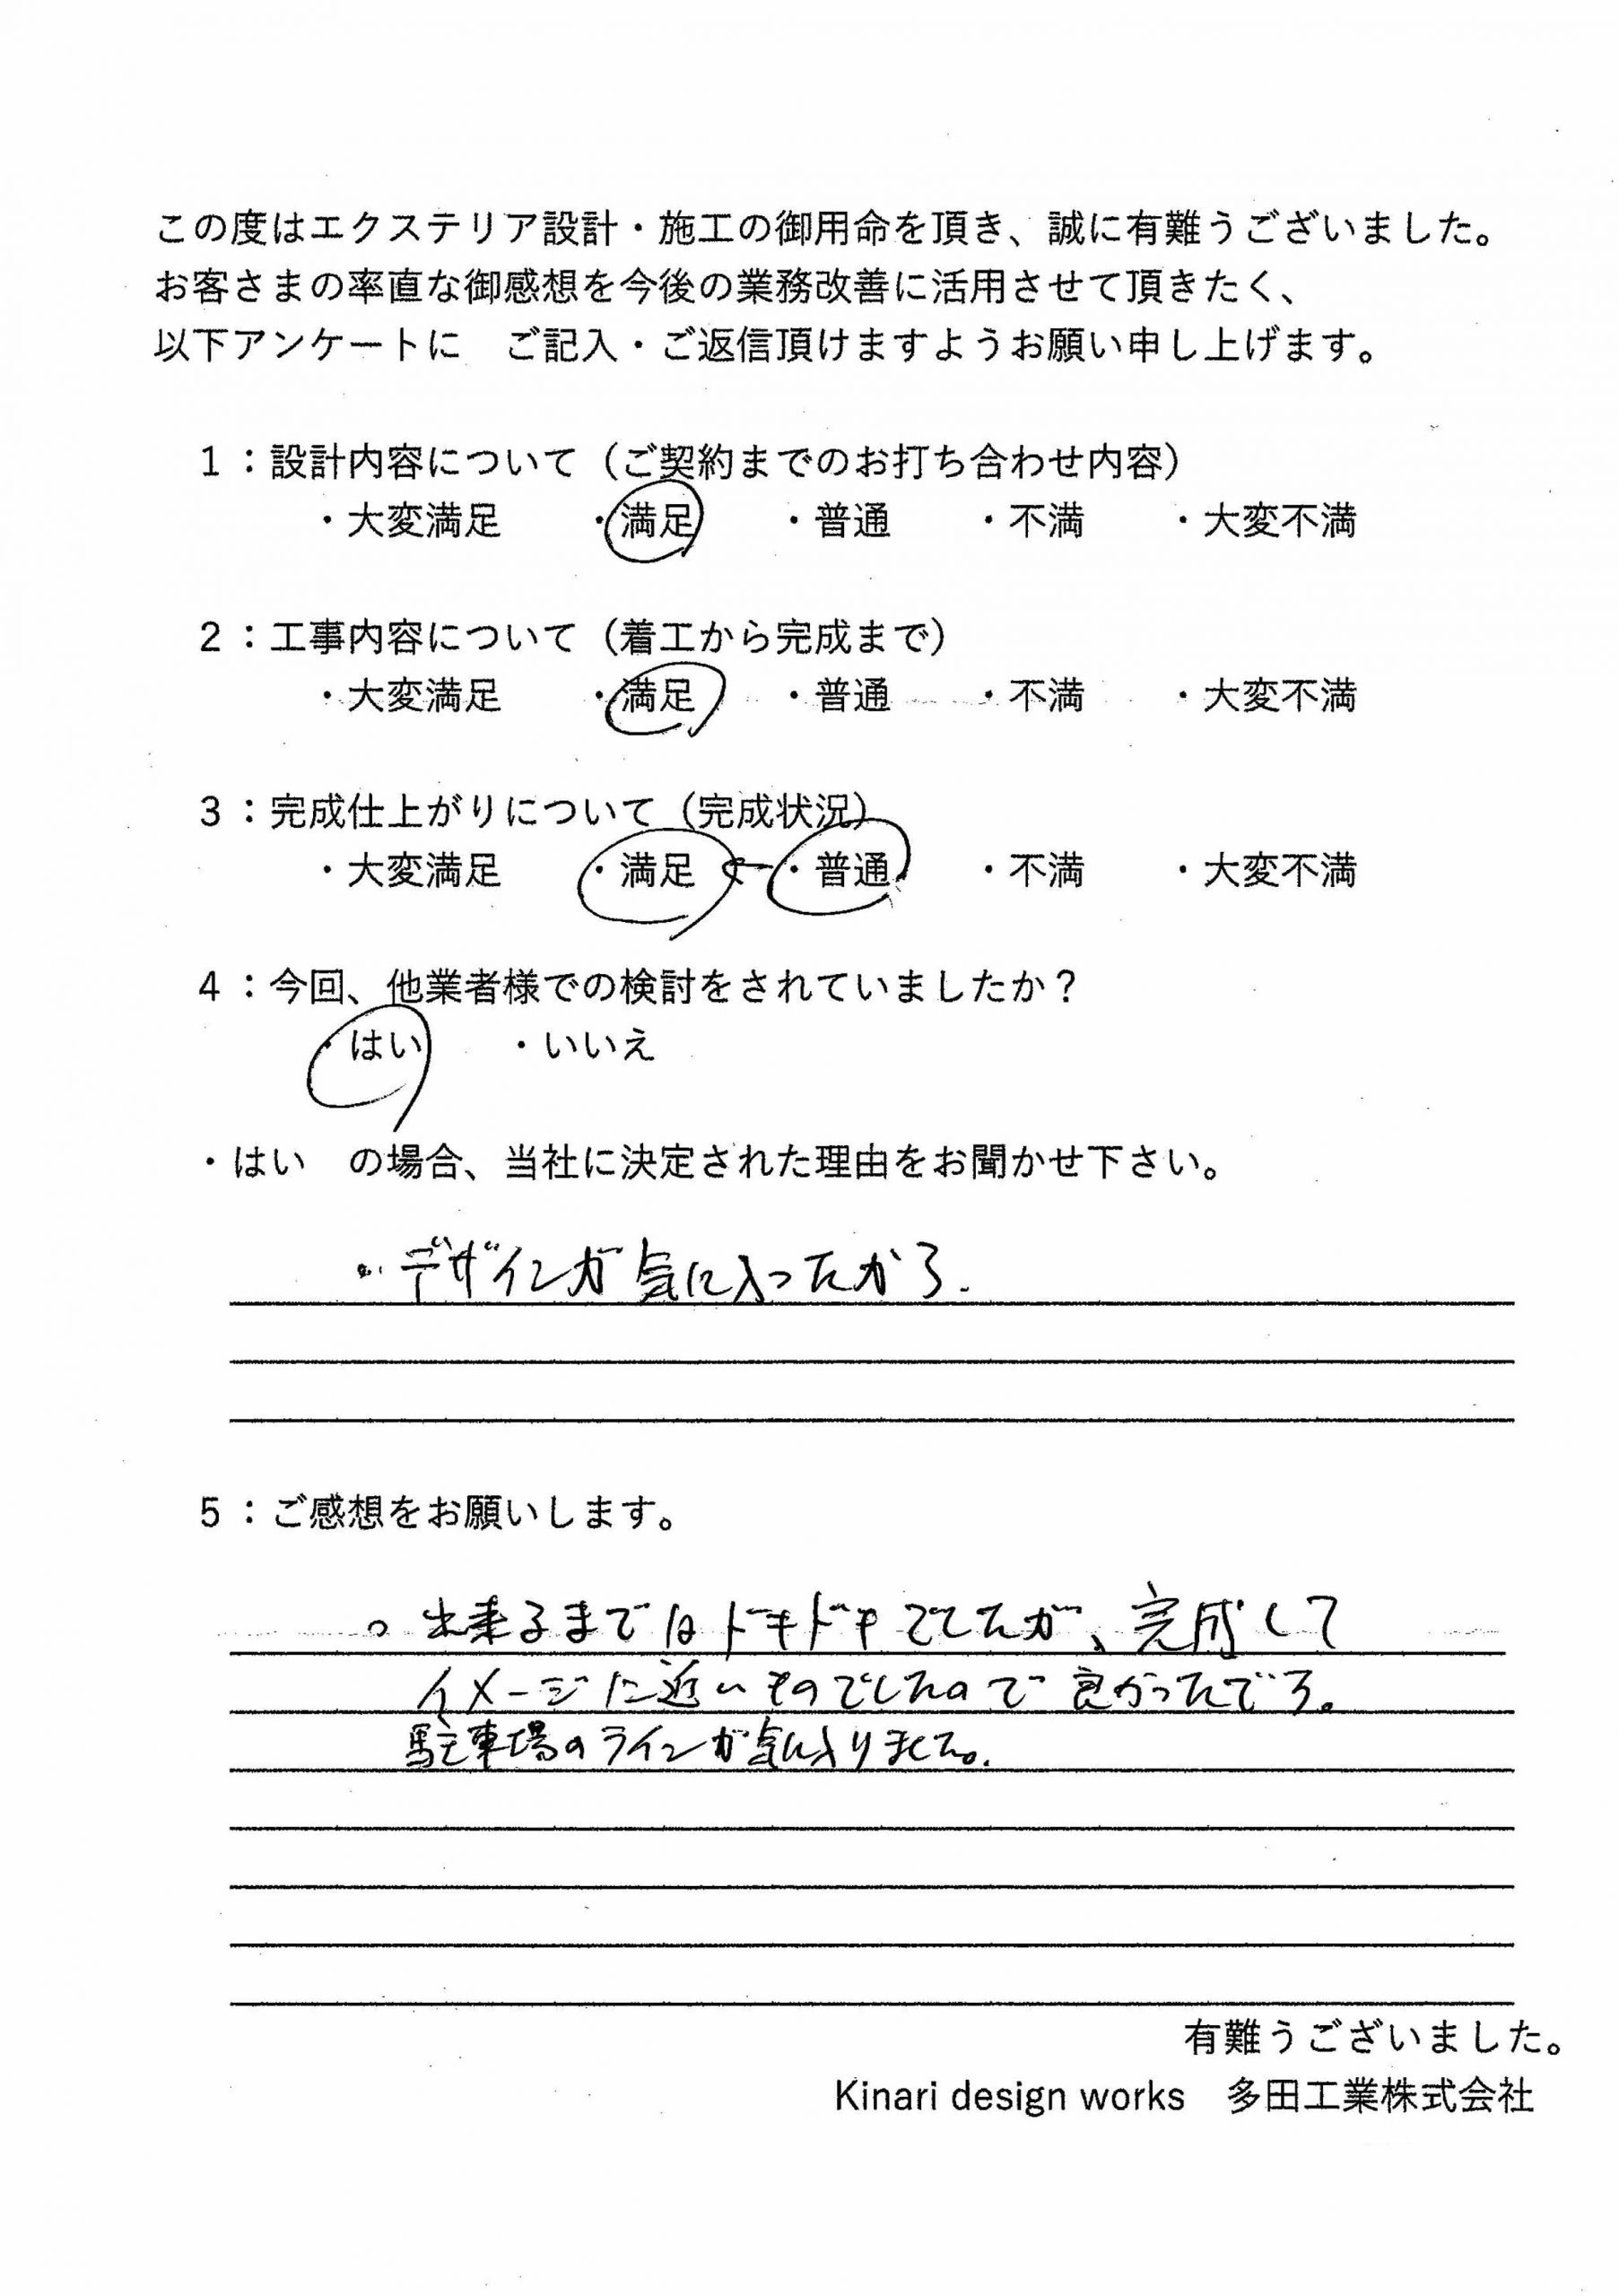 この度はエクステリア設計・施工の御用命を頂き、誠に有難うございました。
お客さまの率直な御感想を今後の業務改善に活用させて頂きたく、
以下アンケートに　ご記入・ご返信頂けますようお願い申し上げます。
1：設計内容について（ご契約までのお打ち合わせ内容）
・大変満足　・満足　・普通　・不満　・大変不満
2：工事内容について（着工から完成まで）
・大変満足　・満足　・普通　・不満　・大変不満
3：完成仕上がりについて（完成状況）
・大変満足　・満足 ← ・普通　・不満　・大変不満
4：今回、他業者様での検討をされていましたか？
・はい　・いいえ
・はい　の場合、当社に決定された理由をお聞かせ下さい。
・デザインが気に入ったから.
5：ご感想をお願いします。
。出来るまではドキドキでしたが、完成して
イメージに近いものでしたので良かったです。
駐車場のラインが気に入りました。
有難うございました。
Kinari design works　多田工業株式会社